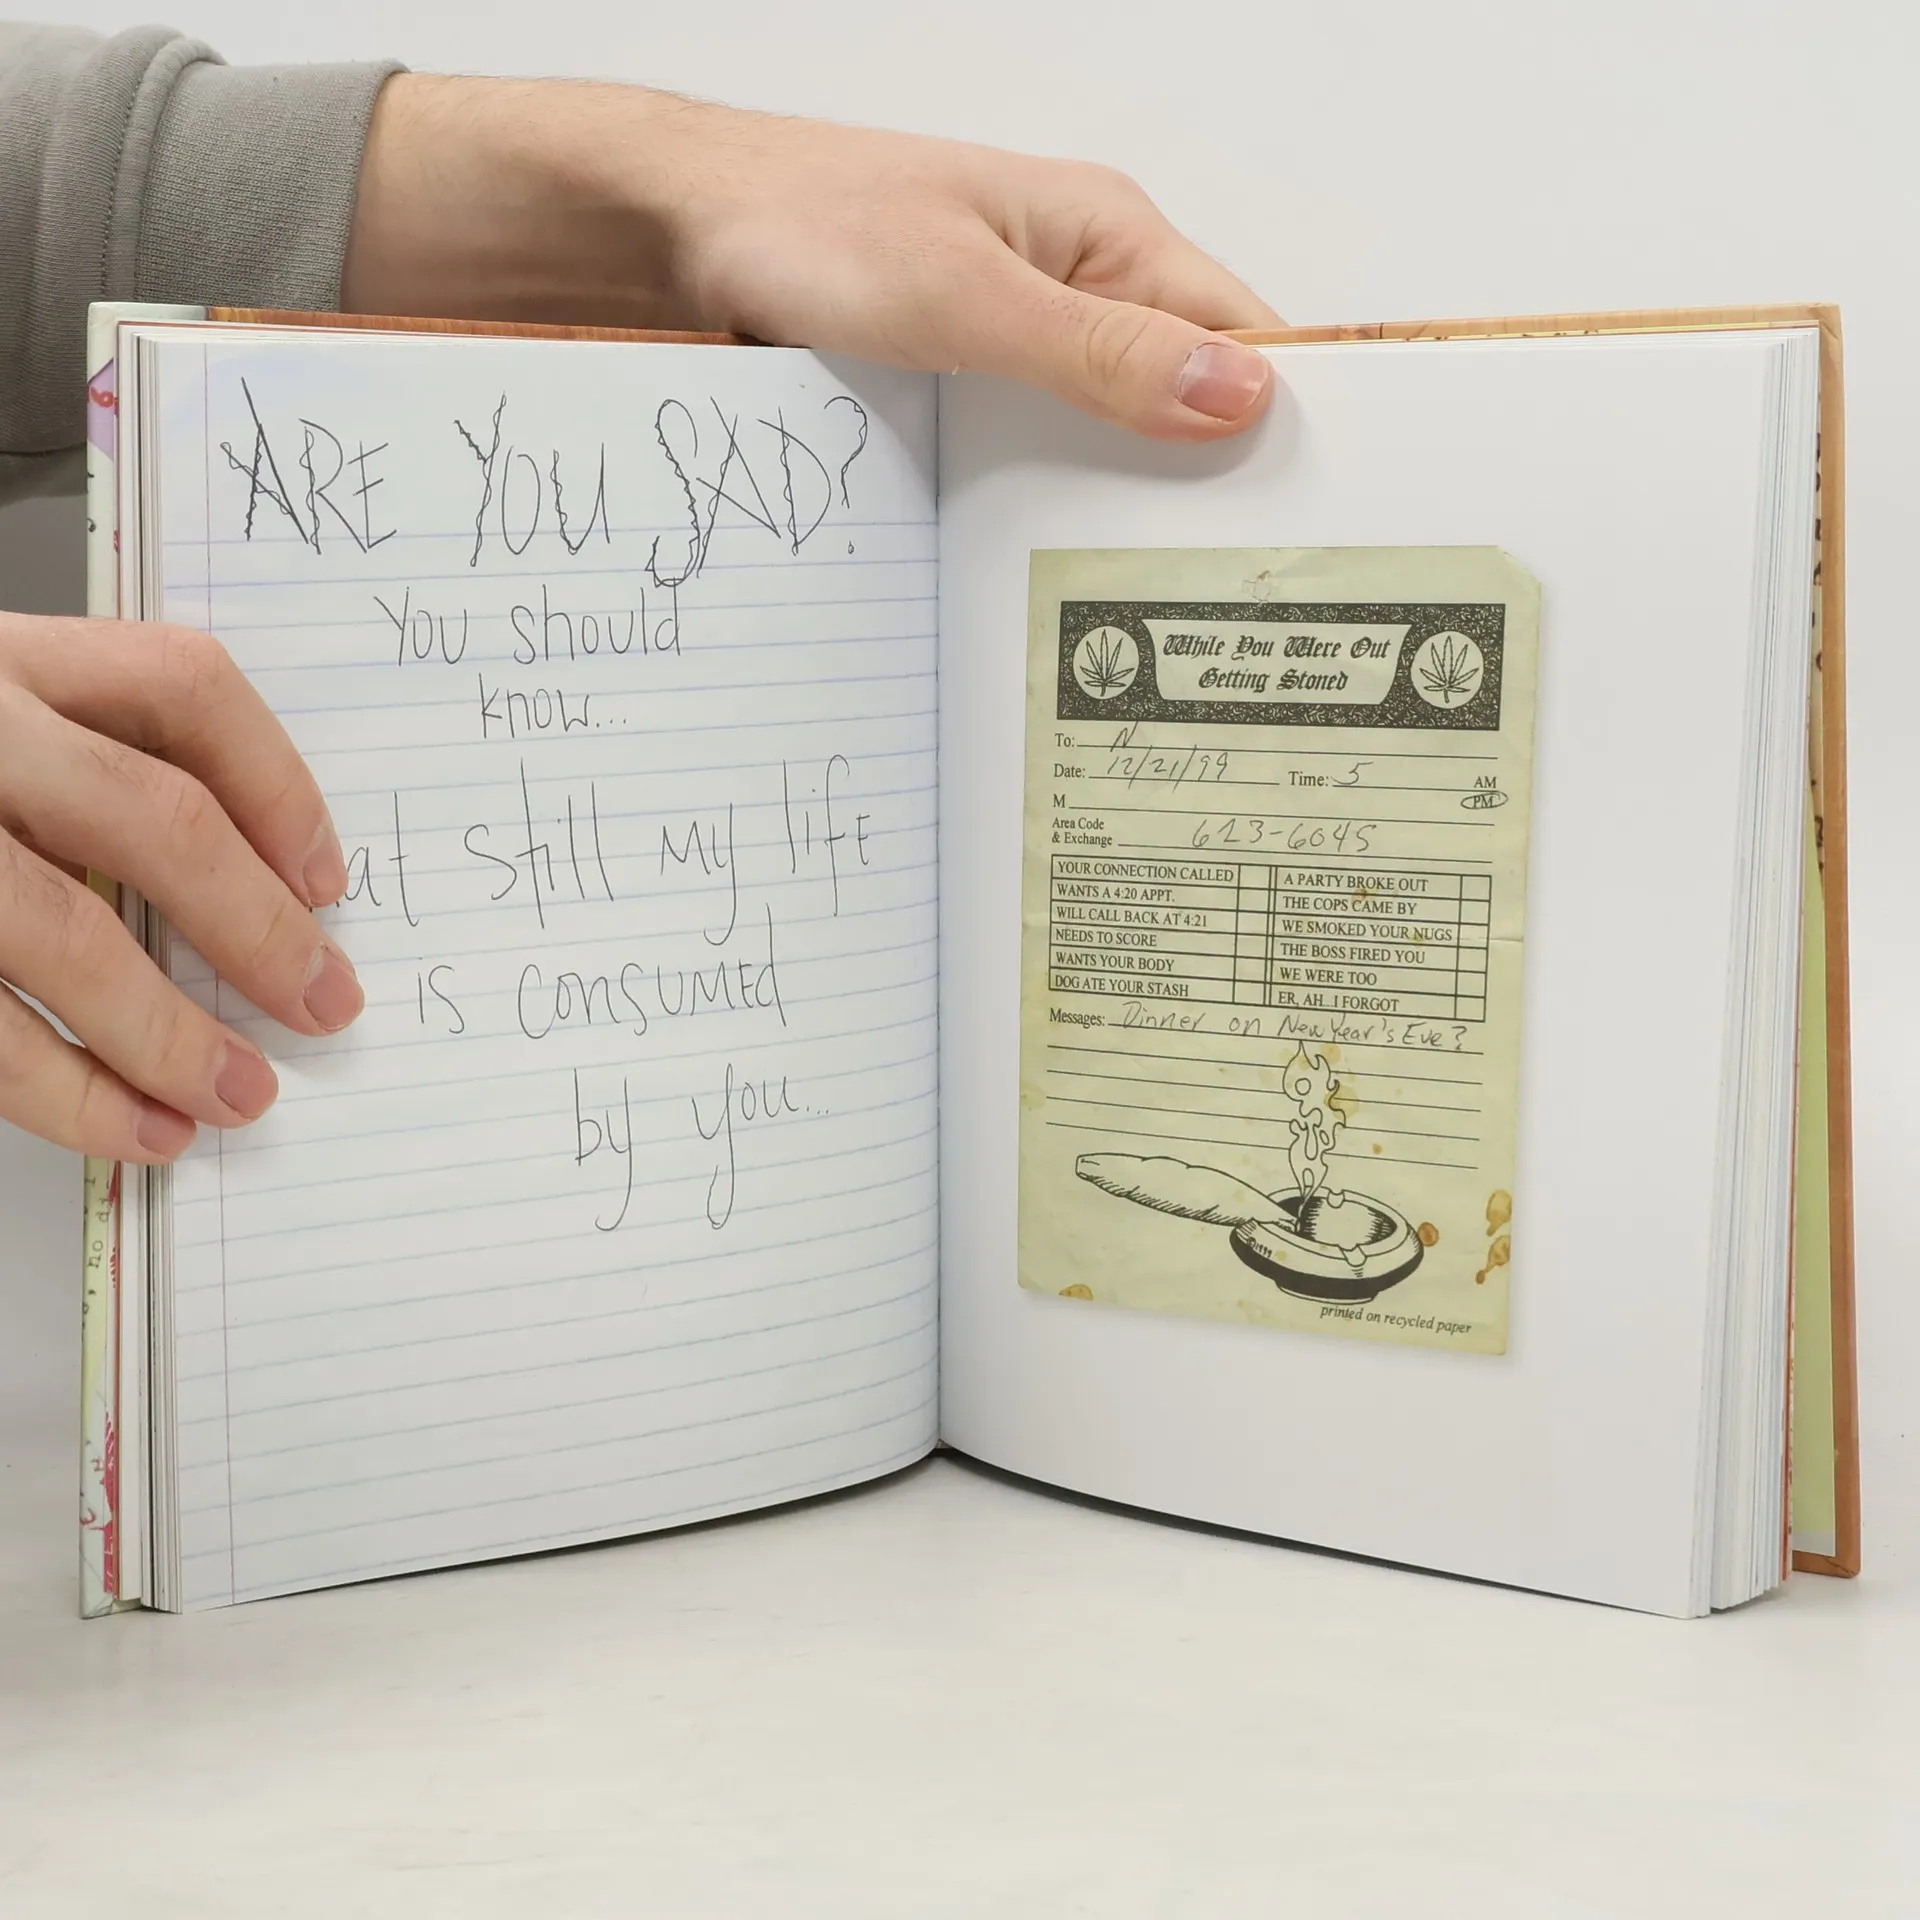 ARE YOU SAD?
You should
know...
at still my life
is consumed
by you...
While You Were Out
Getting Stoned
To: N
Date: 12/21/99 Time: 5 AM
PM
M
Area Code
& Exchange 613-6045
YOUR CONNECTION CALLED A PARTY BROKE OUT
WANTS A 4:20 APPT. THE COPS CAME BY
WILL CALL BACK AT 4:21 WE SMOKED YOUR NUGS
NEEDS TO SCORE THE BOSS FIRED YOU
WANTS YOUR BODY WE WERE TOO
DOG ATE YOUR STASH ER, AH...I FORGOT
Messages: Dinner on New Year's Eve?
©1999
printed on recycled paper